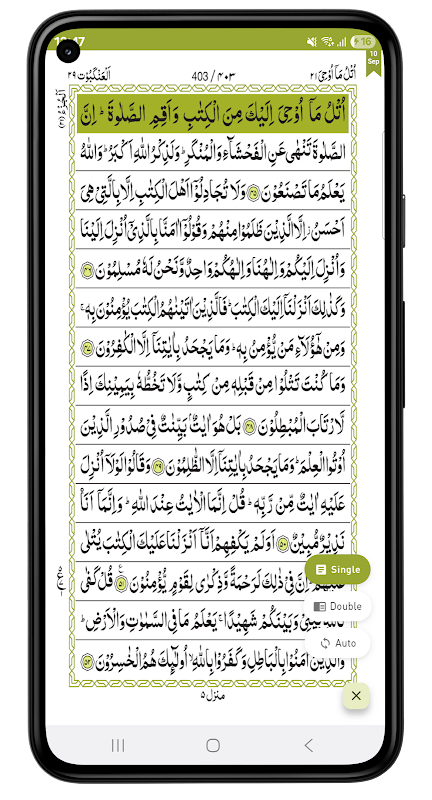 :47
16
10
Sep
اُتْلُ مَاۤ اُوْحِیَ ۲۱
403 / ۴۰۳
اَلْعَنْكَبُوْت ۲۹
اُتْلُ مَاۤ اُوْحِیَ اِلَیْكَ مِنَ الْكِتٰبِ وَاَقِمِ الصَّلٰوةَ ؕ اِنَّ
الصَّلٰوةَ تَنْهٰی عَنِ الْفَحْشَآءِ وَالْمُنْكَرِ ؕ وَلَذِكْرُ اللّٰهِ اَكْبَرُ ؕ وَاللّٰهُ
یَعْلَمُ مَا تَصْنَعُوْنَ ۝۴۵ وَلَا تُجَادِلُوْۤا اَهْلَ الْكِتٰبِ اِلَّا بِالَّتِیْ هِیَ
اَحْسَنُ ۖ اِلَّا الَّذِیْنَ ظَلَمُوْا مِنْهُمْ وَقُوْلُوْۤا اٰمَنَّا بِالَّذِیْۤ اُنْزِلَ اِلَیْنَا
وَاُنْزِلَ اِلَیْكُمْ وَاِلٰهُنَا وَاِلٰهُكُمْ وَاحِدٌ وَّنَحْنُ لَهٗ مُسْلِمُوْنَ ۝۴۶
وَكَذٰلِكَ اَنْزَلْنَاۤ اِلَیْكَ الْكِتٰبَ ؕ فَالَّذِیْنَ اٰتَیْنٰهُمُ الْكِتٰبَ یُؤْمِنُوْنَ بِهٖ ۚ
وَمِنْ هٰۤؤُلَآءِ مَنْ یُّؤْمِنُ بِهٖ ؕ وَمَا یَجْحَدُ بِاٰیٰتِنَاۤ اِلَّا الْكٰفِرُوْنَ ۝۴۷
وَمَا كُنْتَ تَتْلُوْا مِنْ قَبْلِهٖ مِنْ كِتٰبٍ وَّلَا تَخُطُّهٗ بِیَمِیْنِكَ اِذًا
لَّارْتَابَ الْمُبْطِلُوْنَ ۝۴۸ بَلْ هُوَ اٰیٰتٌۢ بَیِّنٰتٌ فِیْ صُدُوْرِ الَّذِیْنَ
اُوْتُوا الْعِلْمَ ؕ وَمَا یَجْحَدُ بِاٰیٰتِنَاۤ اِلَّا الظّٰلِمُوْنَ ۝۴۹ وَقَالُوْا لَوْلَاۤ اُنْزِلَ
عَلَیْهِ اٰیٰتٌ مِّنْ رَّبِّهٖ ؕ قُلْ اِنَّمَا الْاٰیٰتُ عِنْدَ اللّٰهِ ؕ وَاِنَّمَاۤ اَنَا
نَذِیْرٌ مُّبِیْنٌ ۝۵۰ اَوَلَمْ یَكْفِهِمْ اَنَّاۤ اَنْزَلْنَا عَلَیْكَ الْكِتٰبَ یُتْلٰی
عَلَیْهِمْ ؕ اِنَّ فِیْ ذٰلِكَ لَرَحْمَةً وَّذِكْرٰی لِقَوْمٍ یُّؤْمِنُوْنَ ۝۵۱ قُلْ كَفٰی
بَیْنِیْ وَبَیْنَكُمْ شَهِیْدًا ۚ یَعْلَمُ مَا فِی السَّمٰوٰتِ وَالْاَرْضِ ؕ
وَالَّذِیْنَ اٰمَنُوْا بِالْبَاطِلِ وَكَفَرُوْا بِاللّٰهِ ۙ اُولٰٓئِكَ هُمُ الْخٰسِرُوْنَ ۝۵۲
منزل ۵
Single
Double
Auto